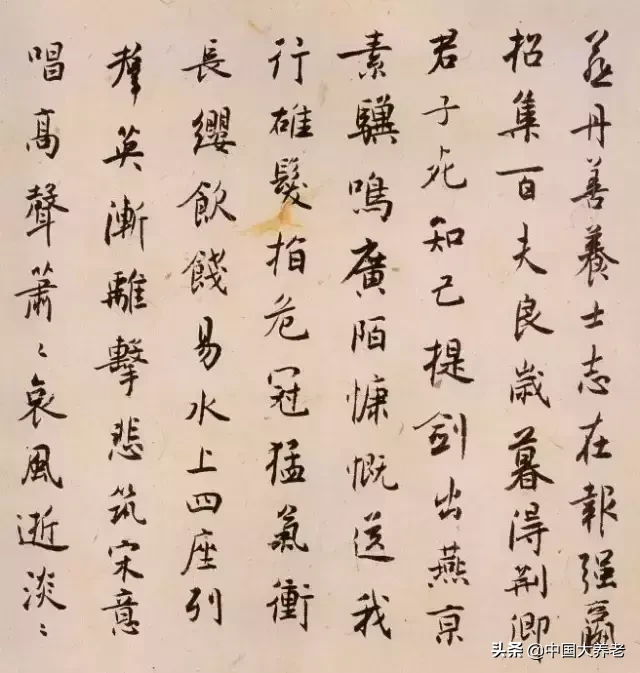 燕丹善養士志在報强嬴
招集百夫良歲暮得荆卿
君子死知己提劍出燕京
素驥鳴廣陌慷慨送我
行雄髮指危冠猛氣衝
長纓飲餞易水上四座列
羣英漸離擊悲筑宋意
唱高聲蕭〻哀風逝淡〻
头条 @中国大养老